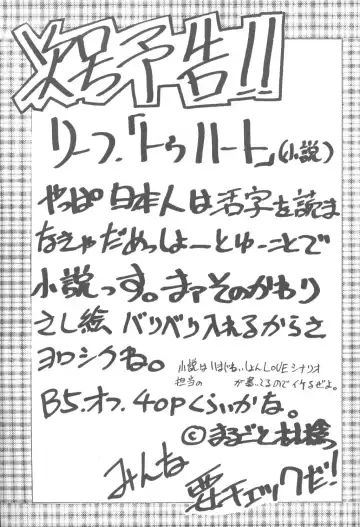 次号予告!!
リーフ.「トゥハート」(小説)
やっぱ日本人は活字を読ま
なきゃだめっしょーとゆーことで
小説っす。まァそのかわり
さし絵バリバリ入れるからさ
ヨロシクね。
小説は
LOVEシナリオ
担当の が書いてるのでイケるぜよ。
B5.オフ.40Pくらいかな。
©まるごと
みんな
要チェックだ!